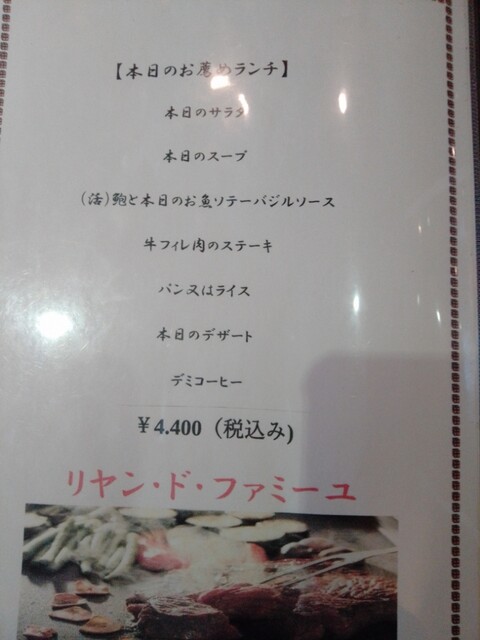 【本日のお薦めランチ】
本日のサラダ
本日のスープ
(活)鮑と本日のお魚ソテーバジルソース
牛フィレ肉のステーキ
パン又はライス
本日のデザート
デミコーヒー
￥4.400（税込み)
リヤン・ド・ファミーユ